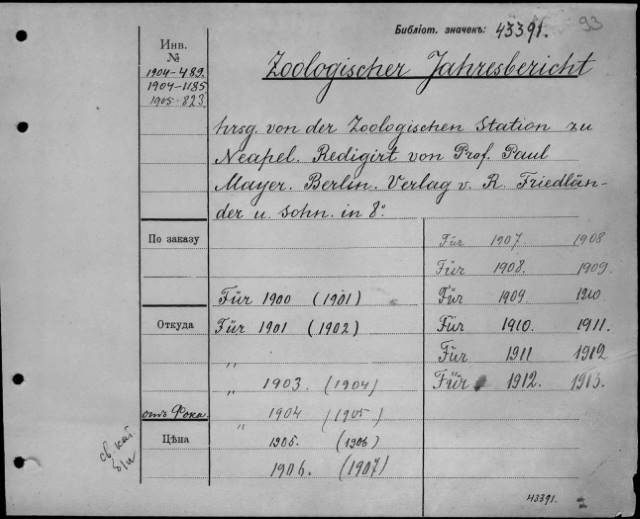 Библіот. значекъ: 43391.
93
Инв.
№
1904-489.
1904-1185
1905-823
Zoologischer Jahresbericht
hrsg. von der Zoologischen Station zu
Neapel. Redigirt von Prof. Paul
Mayer. Berlin. Verlag v. R. Friedlän-
der u. Sohn. in 8º.
По заказу
Für 1900 (1901)
Откуда
Für 1901 (1902)
„
„ 1903. (1904)
отъ Фока.
„ 1904 (1905)
Цѣна
1905. (1906)
1906. (1907)
Für 1907. 1908
Für 1908. 1909.
Für 1909 1910
Für 1910. 1911.
Für 1911 1912
Für 1912. 1913.
св. кат
43391.